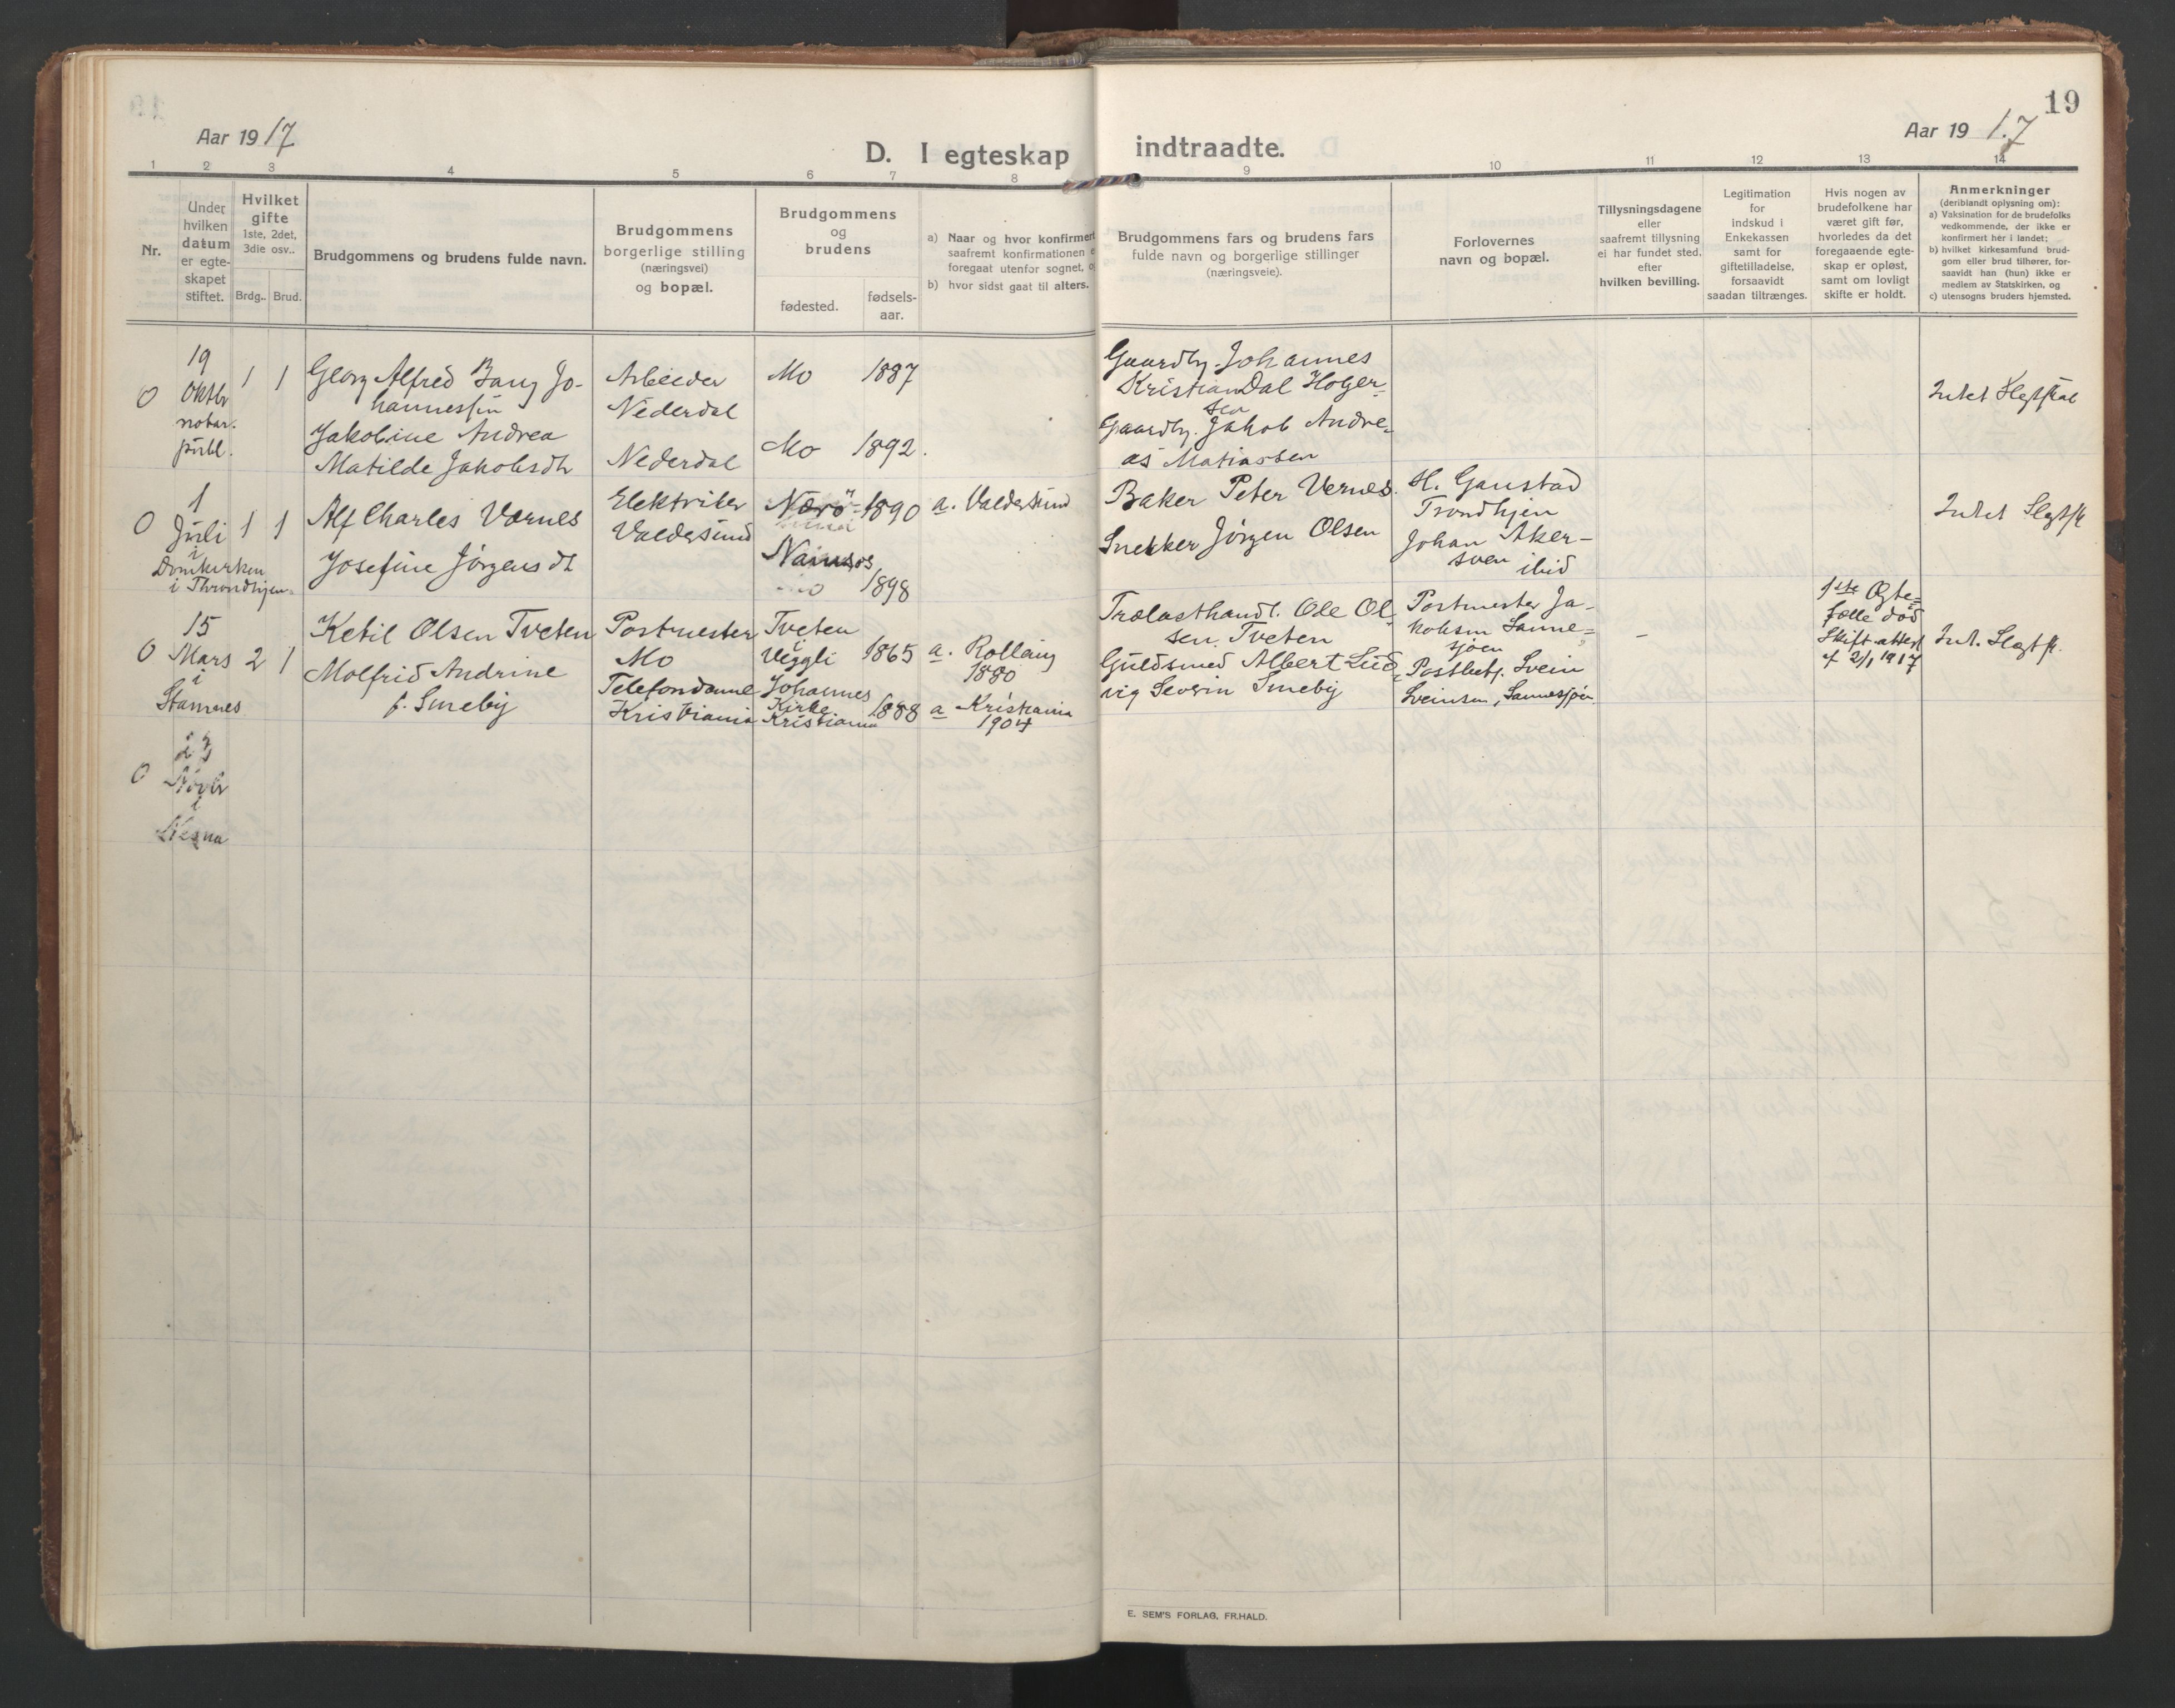 19
Aar 1917
D. I egteskap indtraadte.
Aar 1917
1 2 3 4 5 6 7 8 9 10 11 12 13 14
Nr.
Under
hvilken
datum
er egte-
skapet
stiftet.
Hvilket
gifte
1ste, 2det,
3die osv..
Brdg.. Brud.
Brudgommens og brudens fulde navn.
Brudgommens
borgerlige stilling
(næringsvei)
og bopæl.
Brudgommens
og
brudens
fødested.
fødsels-
aar.
a) Naar og hvor konfirmert
saafremt konfirmationen
foregaat utenfor sognet,
b) hvor sidst gaat til alters.
Brudgommens fars og brudens fars
fulde navn og borgerlige stillinger
(næringsveie).
Forlovernes
navn og bopæl.
Tillysningsdagene
eller
saafremt tillysning
ei har fundet sted,
efter
hvilken bevilling.
Legitimation
for
indskud i
Enkekassen
samt for
giftetilladelse,
forsaavidt
saadan tiltrænges.
Hvis nogen av
brudefolkene har
været gift før,
hvorledes da det
foregaaende egte-
skap er opløst,
samt om lovligt
skifte er holdt.
Anmerkninger
(deriblandt oplysning om):
a) Vaksination for de brudefolks
vedkommende, der ikke er
konfirmert her i landet;
b) hvilket kirkesamfund brud-
gom eller brud tilhører, for-
saavidt han (hun) ikke er
medlem av Statskirken, og
c) utensogns bruders hjemsted.
0
19
Oktbr
notar.
publ.
1 1
Georg Alfred Bang Jo-
hannessen
Jakobine Andrea
Matilde Jakobsdtr
Arbeider
Nederdal
Nederdal
Mo 1887
Mo 1892.
Gaardbr. Johannes
Kristian Dal Holger-
sen
Gaardbr. Jakob Andre-
as Matiassen
Intet Slegtskab
0
1
Juli
i
Domkirken
i Throndhjem
1 1
Alf Charles Værnes
Josefine Jørgensdt
Elektriker
Valdersund
Nærö 1890
Namsos
1898
a. Valdersund
Baker Peter Vernes
Snekker Jörgen Olsen
H. Ganstad
Trondhjem
Johan Aker-
sven ibid
Intet Slegtsk
0
15
Mars
i
Stamnes
2 1
Ketil Olsen Tveten
Molfrid Andrine
f. Smeby
Postmester
Mo
Telefondame
Kristiania
Tveten
i
Veggli 1865
Johannes
Kirke
Kristiania 1888
a. Rollaug
1880
a Kristiania
1904
Trælasthandl. Ole Ol-
sen Tveten
Guldsmed Albert Lud-
vig Severin Smeby
Postmester Ja-
kobsen Sannes-
sjöen
Postbetj. Svein
Sveinsen, Sannessjöen
-
1ste Ægte-
fælle död
Skift. attest
af 2/1 1917
Int. Slegtsk.
0
23
Novbr
i
Nesna
E. SEM'S FORLAG, FR.HALD.